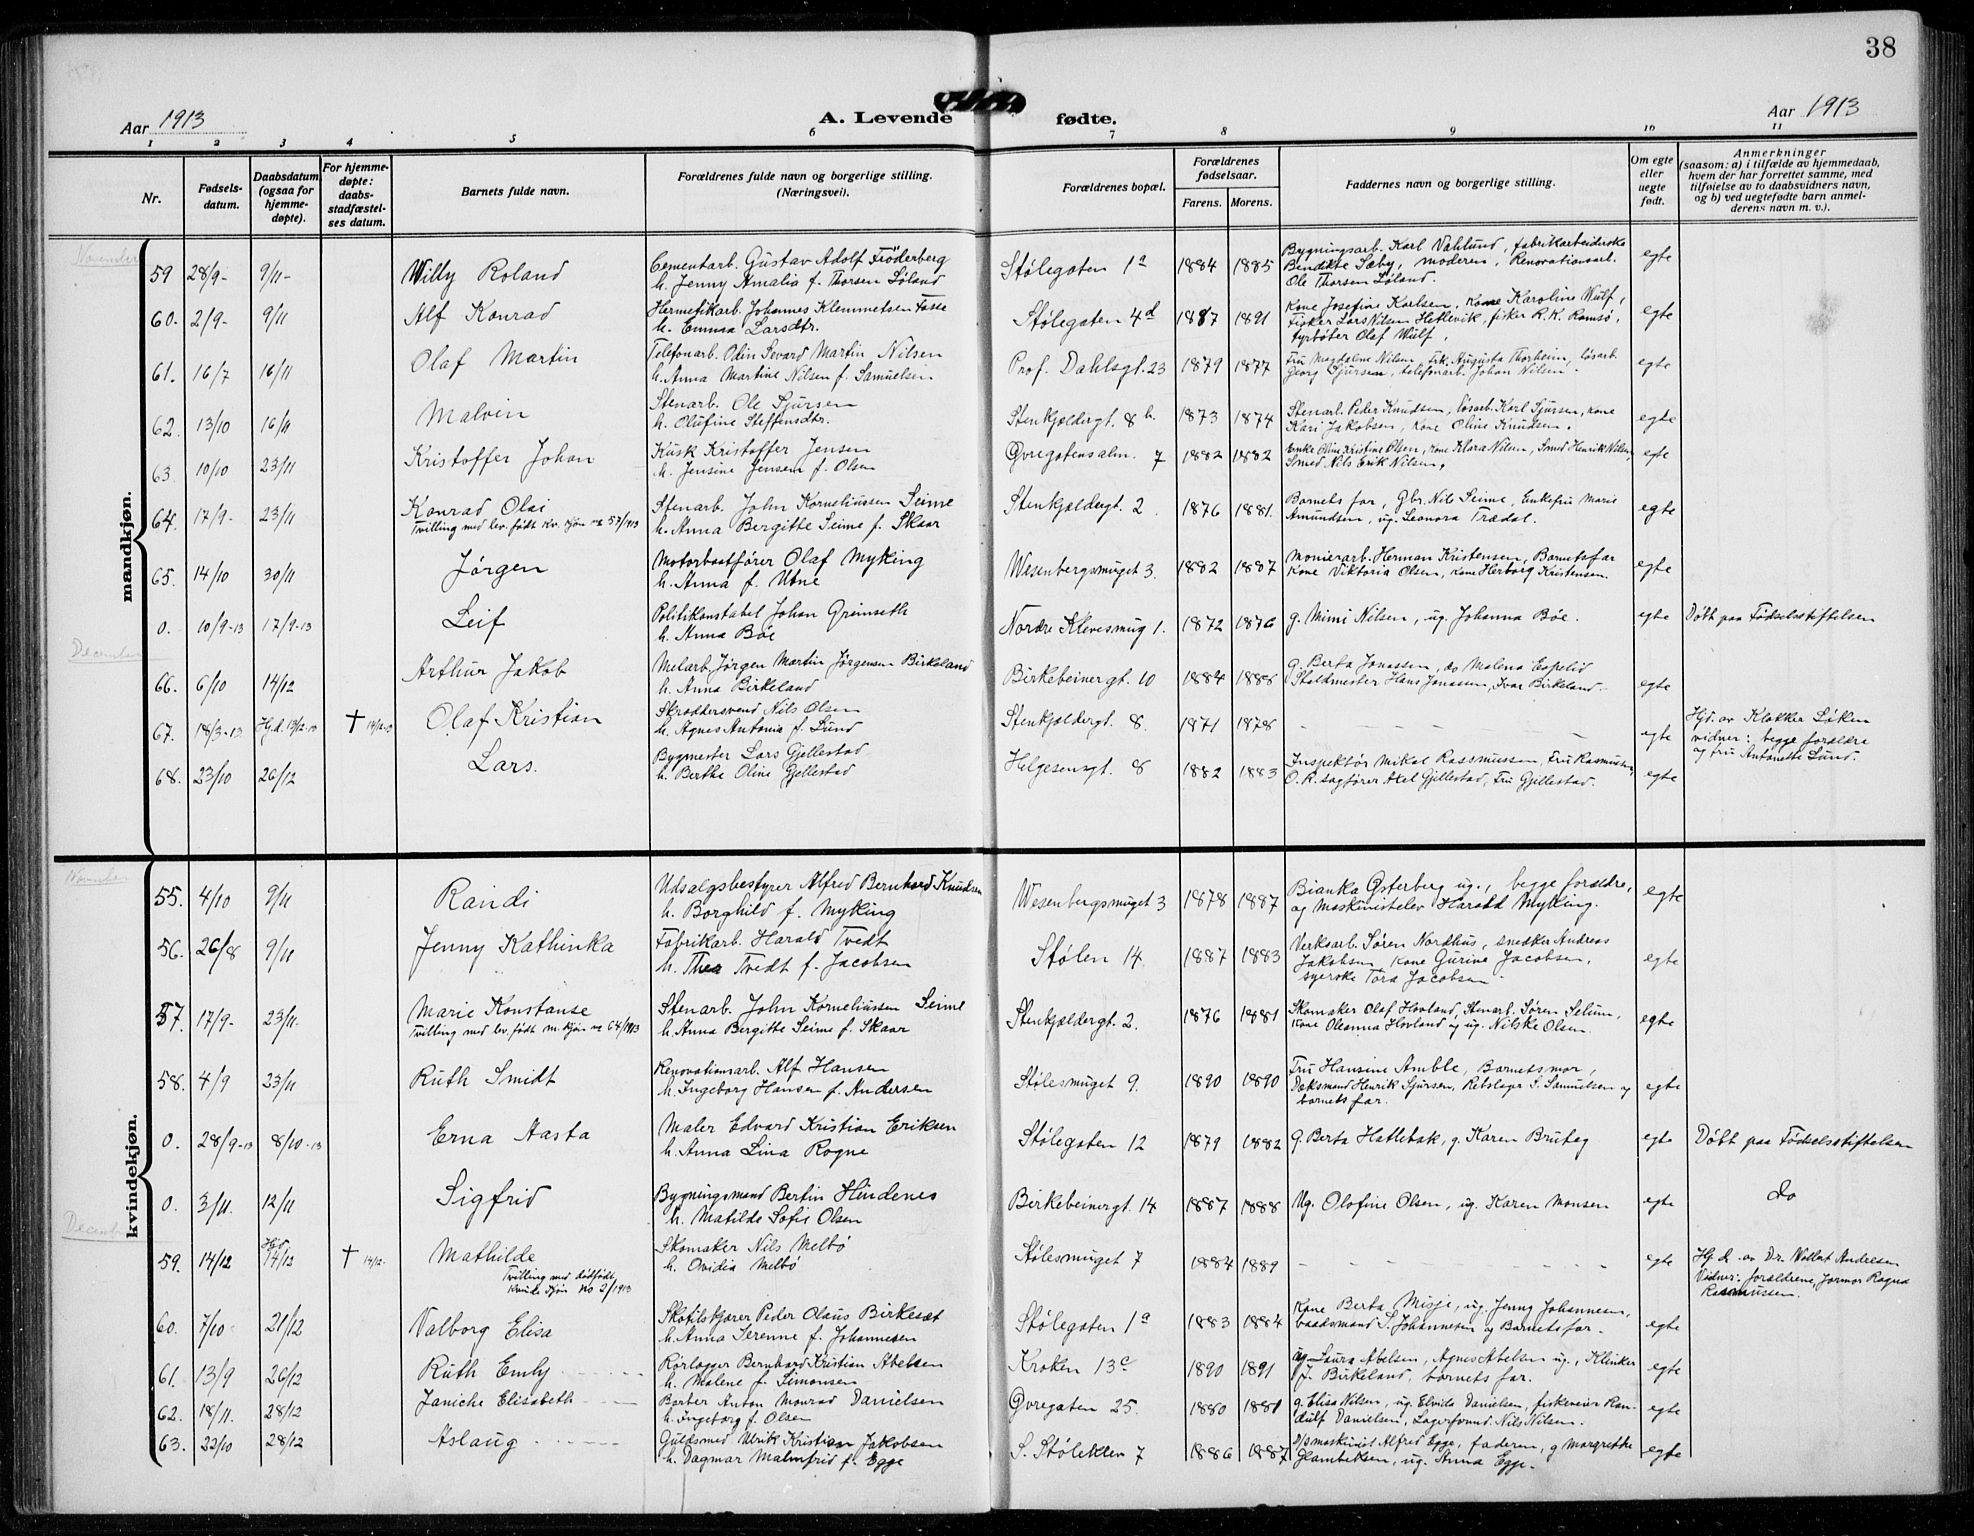 38
Aar 1913
A. Levende fødte.
Aar 1913
1 2 3 4 5 6 7 8 9 10 11
Nr.
Fødsels-
datum.
Daabsdatum
(ogsaa for
hjemme-
døpte).
For hjemme-
døpte:
daabs-
stadfæstel-
ses datum.
Barnets fulde navn.
Forældrenes fulde navn og borgerlige stilling.
(Næringsvei).
Forældrenes bopæl.
Forældrenes
fødselsaar.
Farens. Morens.
Faddernes navn og borgerlige stilling.
Om egte
eller
uegte
født.
Anmerkninger
(saasom: a) i tilfælde av hjemmedaab,
hvem der har forrettet samme, med
tilføielse av to daabsvidners navn,
og b) ved uegtefødte barn anmel-
derens navn m. v.).
November
mandkjøn.
59 28/9- 9/11- Willy Roland
Cementarb. Gustav Adolf Fröderberg
h. Jenny Amalia f. Thorsen Løland
Stølegaten 1a 1884 1885
Bygningsarb. Karl Vahlund, fabrikarbeiderske
Bendikte Sæby, moderen, Renovationsarb.
Ole Thorsen Løland.
egte
60. 2/9- 9/11 Alf Konrad
Hermetikarb. Johannes Klemmetsen Fosse
h. Emma Larsdtr.
Stølegaten 4d 1887 1891
Kone Josefine Karlsen, Kone Karoline Wulf,
Fisker Lars Nilsen Hetlevik, fisker R. K. Ramsø,
fyrbøter Olaf Wulf.
egte
61. 16/7 16/11 Olaf Martin
Telefonarb. Odin Sevard Martin Nilsen
h. Anna Martine Nilsen f. Samuelsen
Prof. Dahlsgt. 23 1879 1877
Fru Magdalene Nilsen, frk. Augusta Thorheim, løsarb.
Georg Sjursen, telefonarb. Johan Nilsen.
egte
62. 13/10 16/11 Malvin
Stenarb. Ole Sjursen
h. Olufine Steffensdtr.
Stenkjeldergt. 8 b. 1873 1874
Stenarb. Peder Knudsen, løsarb. Karl Sjursen, kone
Kari Jakobsen, kone Oline Knudsen.
egte
63 10/10 23/11 Kristoffer Johan
Kusk Kristoffer Jensen
h. Jensine Jensen f. Olsen
Øvregatensalm. 7 1882 1882
Enke Oline Kristine Olsen, Kone Klara Nilsen, Smed Henrik Nilsen
Smed Nils Erik Nilsen.
egte
64. 17/9- 23/11 Konrad Olai
Tvilling med lev. født kv. kjøn no 57/1913
Stenarb. John Korneliussen Seime
h. Anna Bergitte Seime f. Skaar
Stenkjeldergt. 2 1876 1881.
Barnets far, Gbr. Nils Seime, Enkefru Marie
Amundsen, ug. Leonora Trædal.
egte
65. 14/10 30/11 Jørgen
Motorbaatfører Olaf Myking
h. Anna f. Utne
Wesenbergsmuget 3. 1882 1887
Monierarb. Herman Kristensen, Barnets far
Kone Viktoria Olsen, kone Herborg Kristensen.
egte
0. 10/9-13 17/9-13 Leif
Politikonstabel Johan Grimseth
h. Anna Bøe
Nordre Klevesmug 1. 1872 1876
g. Mimi Nilsen, ug. Johanna Bøe.
egte
Døbt paa Fødselsstiftelsen
December
66. 6/10 14/12 Arthur Jakob
Melarb. Jørgen Martin Jørgensen Birkeland
h. Anna Birkeland
Birkebeinergt. 10 1884 1888
g. Berta Jonassen, do Malena Espelid
Staldmester Hans Jonassen, Ivar Birkeland.
egte
67. 18/3-13 Hj.d. 13/12-13 † 14/12-13 Olaf Kristian
Skræddersvend Nils Olsen
h. Agnes Antonia f. Lund
Stenkjeldergt. 8. 1871 1878
egte
Hjd. av Klokker Løken
vidner: begge forældre
og fru Antonette Lund.
68. 23/10 26/12 Lars.
Bygmester Lars Gjellestad
h. Berthe Oline Gjellestad
Helgesensgt. 8 1882 1883
Inspektør Mikal Rasmussen, Fru Rasmussen,
O. R. sagfører Axel Gjellestad, Fru Gjellestad.
egte
November
kvindekjøn.
55. 4/10 9/11 Randi
Udsalgsbestyrer Alfred Bernhard Knudsen
h. Borghild f. Myking
Wesenbergsmuget 3 1878 1887
Bianka Østerberg ug., begge forældre,
og Maskinistelev Harald Myking.
egte
56. 26/8 9/11 Jenny Kathinka
Fabrikarb. Harald Tvedt
h. Thea Tvedt f. Jacobsen
Stølen 14. 1887 1883
Verksarb. Søren Nordhus, snedker Andreas
Jakobsen Kone Gurine Jacobsen,
syerske Tora Jacobsen
egte
57. 17/9- 23/11. Marie Konstanse
Tvilling med lev. født m. kjøn no 64/1913
Stenarb. John Korneliussen Seime
h. Anna Bergitte Seime f. Skaar
Stenkjeldergt. 2. 1876 1881
Skomaker Olaf Hovland, Stenarb. Søren Selum,
Kone Oleanna Hovland og ug. Nilske Olsen.
egte
58. 4/9 23/11 Ruth Smidt
Renovationsarb. Alf Hansen
h. Ingeborg Hansen f. Andersen
Stølesmuget 9. 1890 1890
Fru Hansine Amble, Barnets mor,
Dæksmand Henrik Sjursen, Rebslager S. Samuelsen og
barnets far.
egte
0. 28/9-13 8/10-13 Erna Aasta
Maler Edvard Kristian Eriksen
h. Anna Lina Rogne
Stølegaten 12 1879 1882
g. Berta Hatlebak, g. Karen Bruteg
egte
Døbt paa Fødselsstiftelsen
0. 3/11. 12/11 Sigfrid
Bygningsmand Bertin Hindenes
h. Matilde Sofie Olsen
Birkebeinergt. 14 1887 1888
Ug. Olofine Olsen, ug. Karen Monsen
egte
do
December
59. 14/12 Hjd 14/12 † 14/12- Mathilde
Tvilling med dødfødt
kvinde kjøn no 2/1913
Skomaker Nils Melbø
h. Ovidia Melbø
Stølesmuget 7 1884 1889
egte
Hj. d. av Dr. Wollert Andresen
Vidner: forældrene, Jormor Ragna
Rasmussen.
60. 7/10 21/12 Valborg Elisa
Skotilskjærer Peder Olaus Birkesæt
h. Anna Serenne f. Johannesen
Stølegaten 1a 1883 1884
Kone Berta Misje, ug. Jenny Johannesen,
baadsmand S. Johannesen og Barnets far.
egte
61. 13/9 26/12 Ruth Emly
Rørlægger Bernhard Kristian Abelsen
h. Malene f. Simonsen
Kroken 13c 1890 1891
ug. Laura Abelsen, Agnes Abelsen ug., Klinker
J. Birkeland, barnets far.
egte
62. 18/11. 28/12 Janiche Elisabeth
Barber Anton Monrad Danielsen
h. Ingeborg f. Olsen
Øvregaten 25. 1880 1881
g. Elisa Nilsen, ug. Elvida Danielsen, fiskeveier Ran-
dulf Danielsen, Lagerformd. Nils Nilsen.
egte
63. 22/10 28/12 Aslaug
Guldsmed Ulrik Kristian Jakobsen
h. Dagmar Malmfrid f. Egge
S. Støleklev 7 1886 1887
D/s maskinist Alfred Egge, faderen, g Margrethe
Glambeksen, ug. Anna Egge.
egte